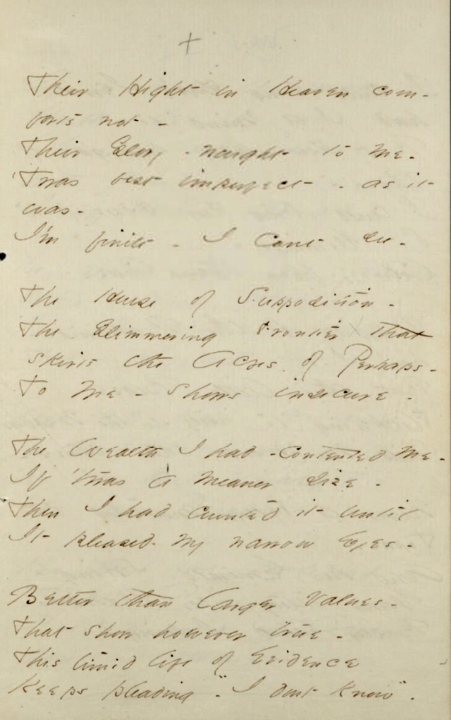 +
Their Hight in Heaven com-
forts not -
Their Glory - nought to me -
'Twas best imperfect - as it
was -
I'm finite - I cant see -
The House of Supposition -
The Glimmering Frontier that
skirts the Acres of Perhaps -
To Me - shows insecure -
The Wealth I had - contented me -
If 'twas a meaner size -
Then I had counted it until
It pleased my narrow Eyes -
Better than larger values -
That show however true -
This timid life of Evidence
Keeps pleading - "I dont know".